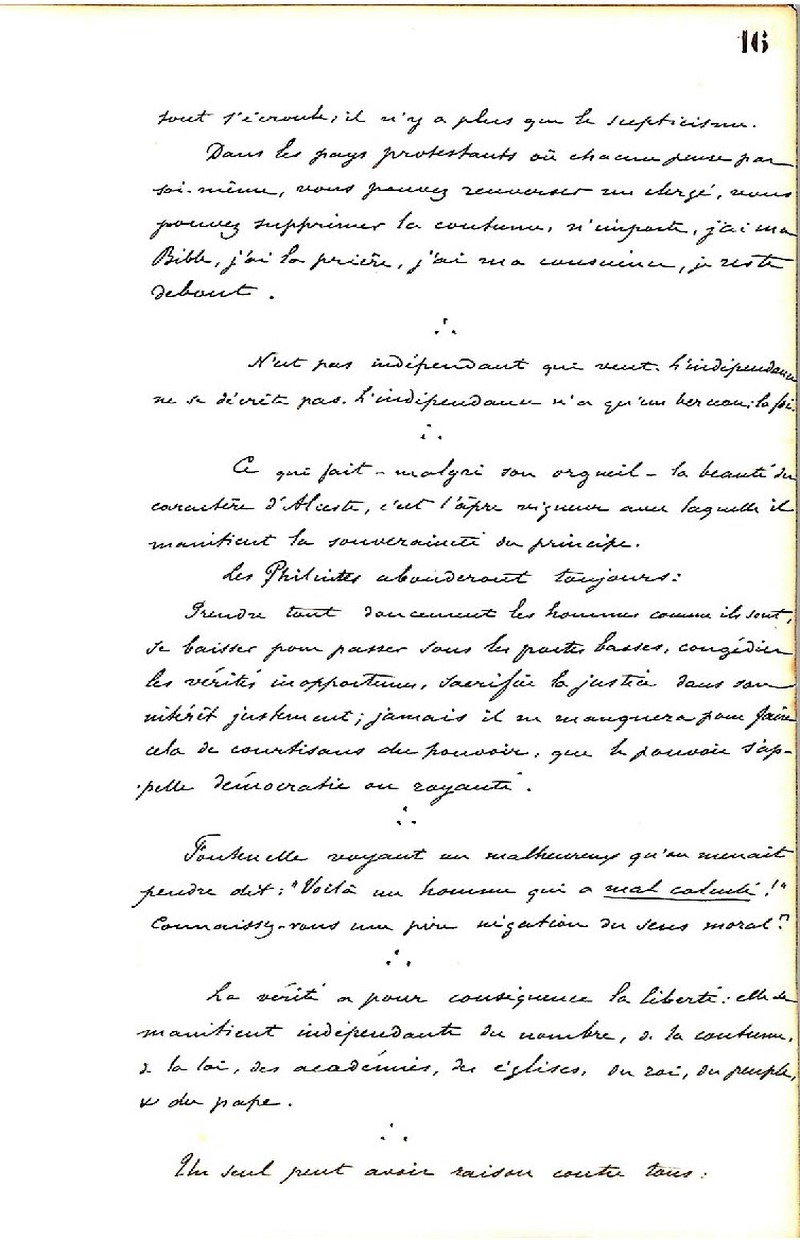 16
tout s'écroule; il n'y a plus que le scepticisme.
Dans les pays protestants où chacun pense par
soi-même, vous pouvez renverser un clergé, vous
pouvez supprimer la coutume, n'importe, j'ai ma
Bible, j'ai la prière, j'ai ma conscience, je reste
debout.
∴
N'est pas indépendant qui veut. L'indépendance
ne se décrète pas. L'indépendance n'a qu'un berceau: la foi.
∴
Ce qui fait - malgré son orgueil - la beauté du
caractère d'Alceste, c'est l'âpre vigueur avec laquelle il
maintient la souveraineté du principe.
Les Philintes abonderont toujours:
Prendre tout doucement les hommes comme ils sont,
se baisser pour passer sous les portes basses, congédier
les vérités inopportunes, sacrifier la justice dans son
intérêt justement; jamais il ne manquera pour faire
cela de courtisans du pouvoir, que le pouvoir s'ap-
pelle démocratie ou royauté.
∴
Fontenelle voyant un malheureux qu'on menait
pendre dit: "Voilà un homme qui a mal calculé!"
Connaissez-vous une pire négation du sens moral?
∴
La vérité a pour conséquence la liberté: elle se
maintient indépendante du nombre, de la coutume,
de la loi, des académies, des églises, du roi, du peuple,
& du pape.
∴
Un seul peut avoir raison contre tous: